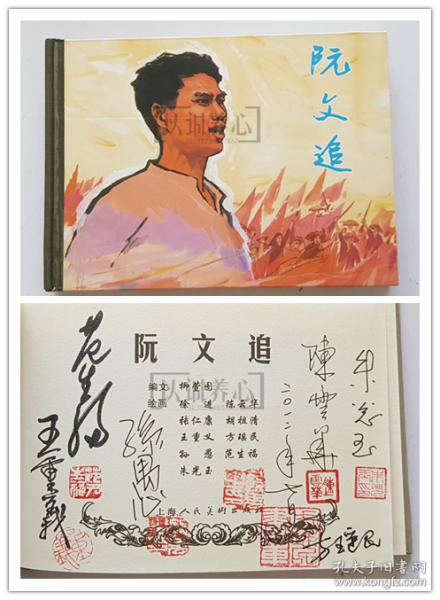 阮文追
认准养心
阮文追
编文 柳萱图
绘画 徐进 陈云华
张仁康 胡祖清
王重义 方瑶民
孙愚 范生福
朱光玉
认准养心
范生福
王重义
孙愚
陈云华
二〇一二年
朱光玉
方瑶民
上海人民美术出版社
孔夫子旧书网
www.kongfz.com